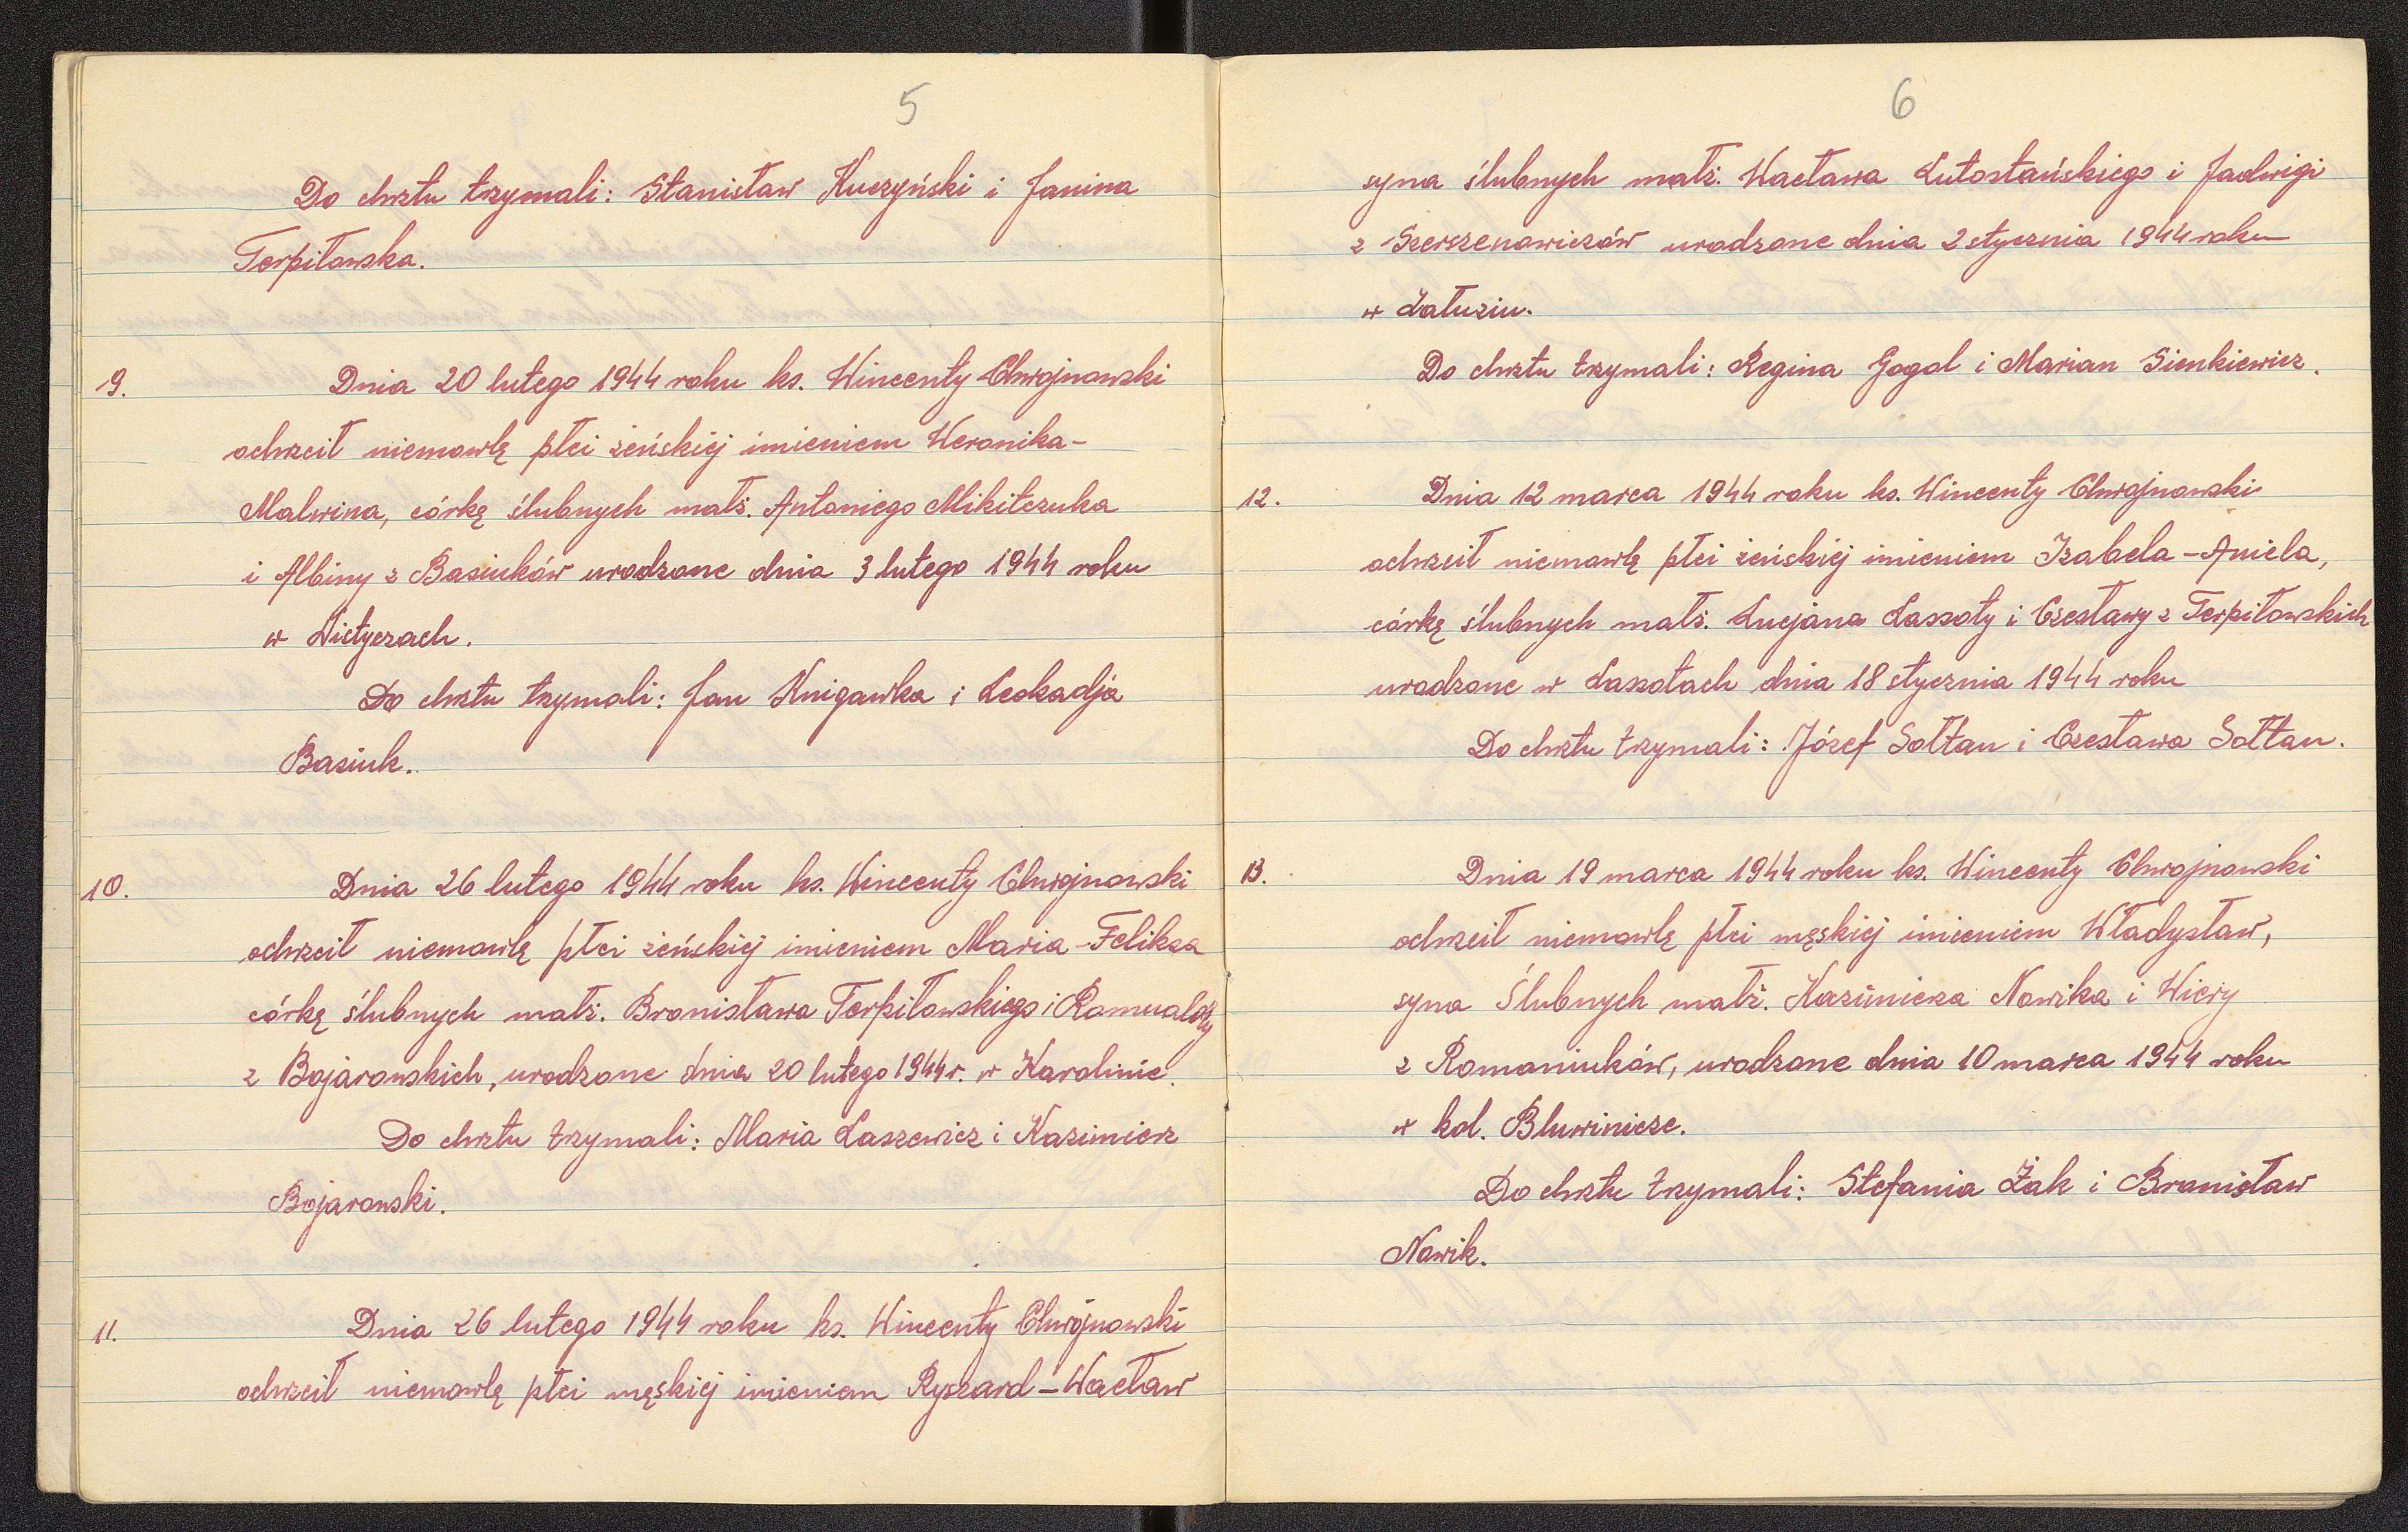 5
Do chrztu trzymali: Stanisław Kuczyński i Janina
Terpiłowska.
9. Dnia 20 lutego 1944 roku ks. Wincenty Chwojnowski
ochrzcił niemowlę płci żeńskiej imieniem Weronika-
Malwina, córkę ślubnych małż. Antoniego Mikitczuka
i Albiny z Basiuków urodzone dnia 3 lutego 1944 roku
w Wietyczach.
Do chrztu trzymali: Jan Knigawka i Leokadja
Basiuk.
10. Dnia 26 lutego 1944 roku ks. Wincenty Chwojnowski
ochrzcił niemowlę płci żeńskiej imieniem Maria-Feliksa
córkę ślubnych małż. Bronisława Terpiłowskiego i Romualdy
z Bojarowskich, urodzone dnia 20 lutego 1944 r. w Karolinie.
Do chrztu trzymali: Maria Łaszewicz i Kazimierz
Bojarowski.
11. Dnia 26 lutego 1944 roku ks. Wincenty Chwojnowski
ochrzcił niemowlę płci męskiej imieniem Ryszard-Wacław
6
syna ślubnych małż. Wacława Lutostańskiego i Jadwigi
z Szerszenowiczów urodzone dnia 2 stycznia 1944 roku
w Łałuziu.
Do chrztu trzymali: Regina Gogol i Marian Sienkiewicz.
12. Dnia 12 marca 1944 roku ks. Wincenty Chwojnowski
ochrzcił niemowlę płci żeńskiej imieniem Izabela-Aniela,
córkę ślubnych małż. Lucjana Lassoty i Czesławy z Terpiłowskich
urodzone w Lassotach dnia 18 stycznia 1944 roku
Do chrztu trzymali: Józef Sołtan i Czesława Sołtan.
13. Dnia 19 marca 1944 roku ks. Wincenty Chwojnowski
ochrzcił niemowlę płci męskiej imieniem Władysław,
syna Ślubnych małż. Kazimierza Nowika i Wiery
z Romaniuków, urodzone dnia 10 marca 1944 roku
w kol. Bluwinicze.
Do chrztu trzymali: Stefania Żak i Bronisław
Nowik.